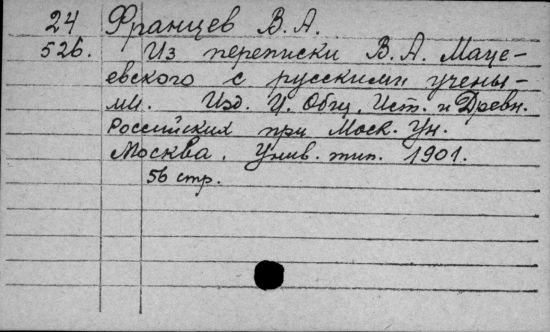 24 Францев В. А.
526. Из переписки В. А. Маце-
евского с русскими учены-
ми. Изд. И. Общ. Ист. и Древн.
Российских при Моск. Ун.
Москва. Унив. тип. 1901.
56 стр.